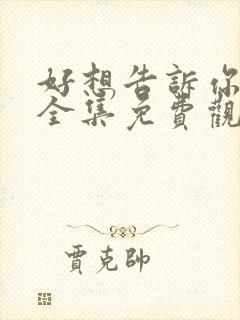 好想告訴你
全集免費觀
賈克帥